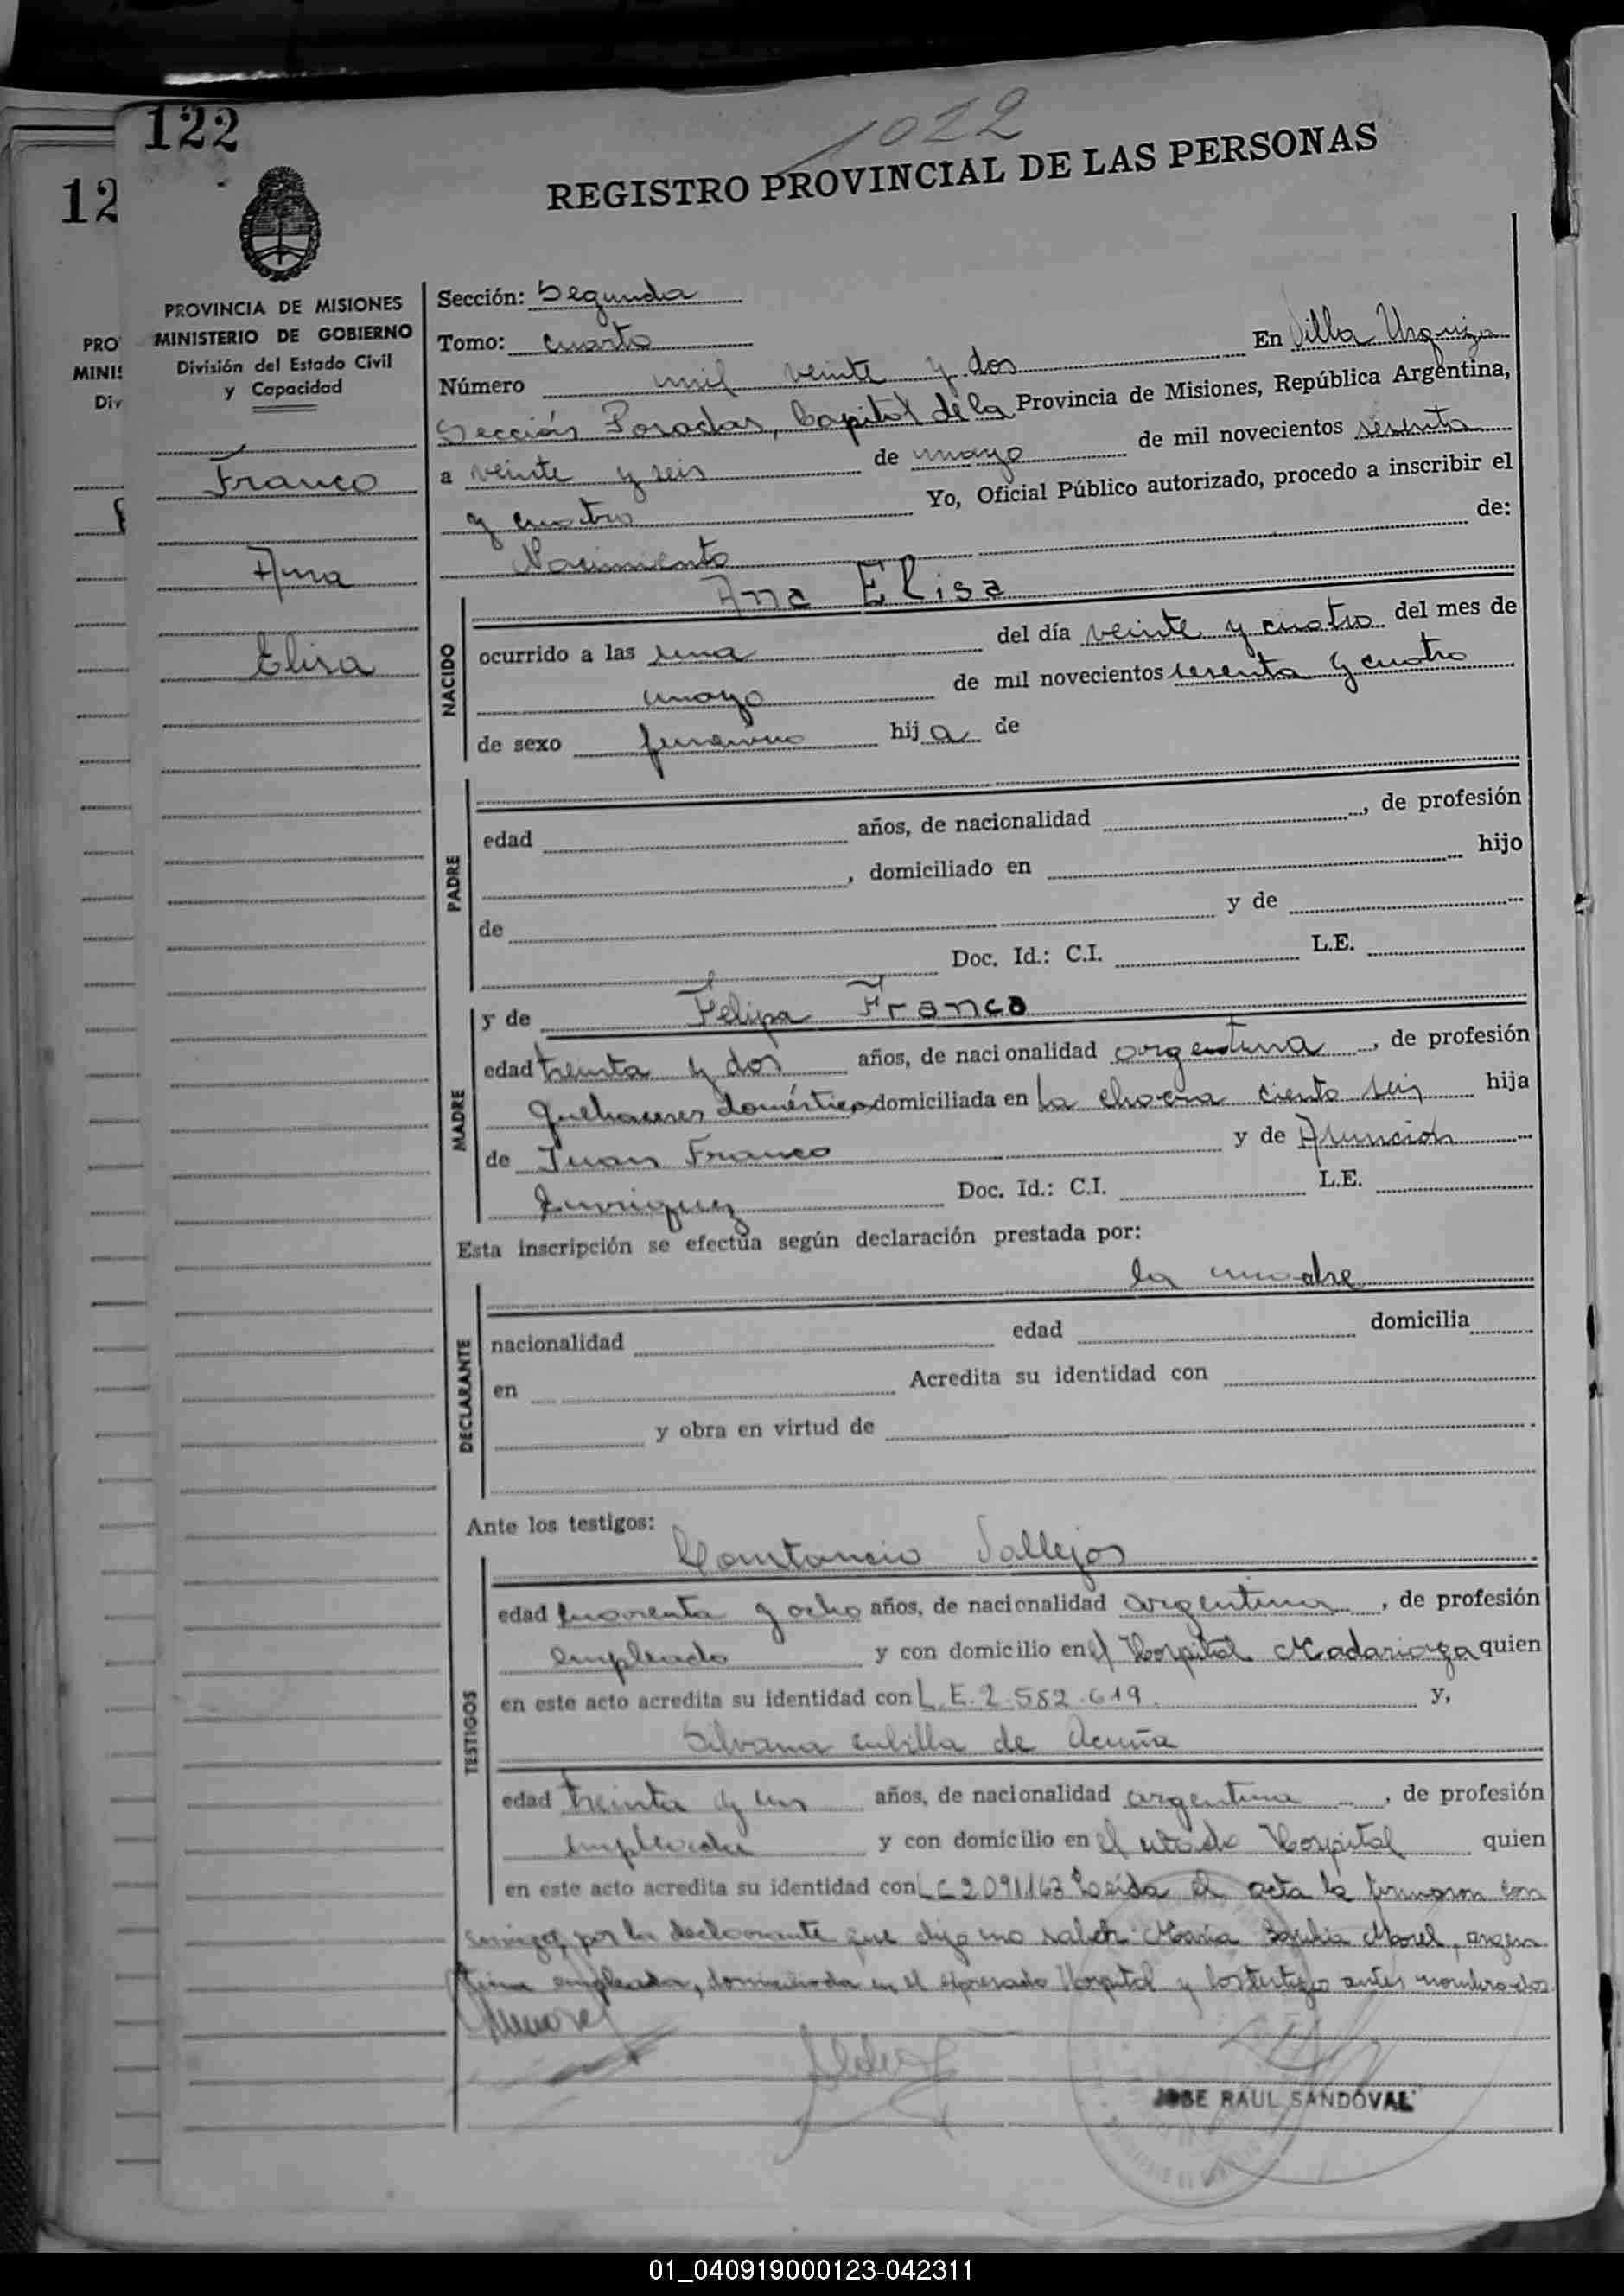 122
1022
12
REGISTRO PROVINCIAL DE LAS PERSONAS
PROVINCIA DE MISIONES
MINISTERIO DE GOBIERNO
División del Estado Civil
y Capacidad
PRO
MINIS
Div
Franco
Ana
Elisa
Sección: Segunda
Tomo: cuarto
Número mil veinte y dos En Villa Urquiza
Sección Posadas, Capital de la Provincia de Misiones, República Argentina,
a veinte y seis de mayo de mil novecientos sesenta
y cuatro Yo, Oficial Público autorizado, procedo a inscribir el
Nacimiento de:
NACIDO
Ana Elisa
ocurrido a las una del día veinte y cuatro del mes de
mayo de mil novecientos sesenta y cuatro
de sexo femenino hija de
PADRE
edad años, de nacionalidad , de profesión
, domiciliado en hijo
de y de
Doc. Id.: C.I. L.E.
MADRE
y de Felipa Franco
edad treinta y dos años, de nacionalidad argentina , de profesión
quehaceres domésticos domiciliada en La chacra ciento seis hija
de Juan Franco y de Asunción
Doc. Id.: C.I. L.E.
Esta inscripción se efectúa según declaración prestada por:
la madre
DECLARANTE
nacionalidad edad domicilia
en Acredita su identidad con
y obra en virtud de
Ante los testigos:
TESTIGOS
Constancio Vallejos
edad cuarenta y ocho años, de nacionalidad argentina , de profesión
empleado y con domicilio en el Hospital Madariaga quien
en este acto acredita su identidad con L.E. 2.582.619 y,
Silvana cubilla de Acuña
edad treinta y un años, de nacionalidad argentina , de profesión
empleada y con domicilio en el citado Hospital quien
en este acto acredita su identidad con L C 2091163 Leída el acta la firmaron con
migo, por la declarante que dijo no saber María Morel, argen
tina empleada, domiciliada en el expresado Hospital y los testigos antes nombrados
JOSE RAUL SANDOVAL
01_040919000123-042311